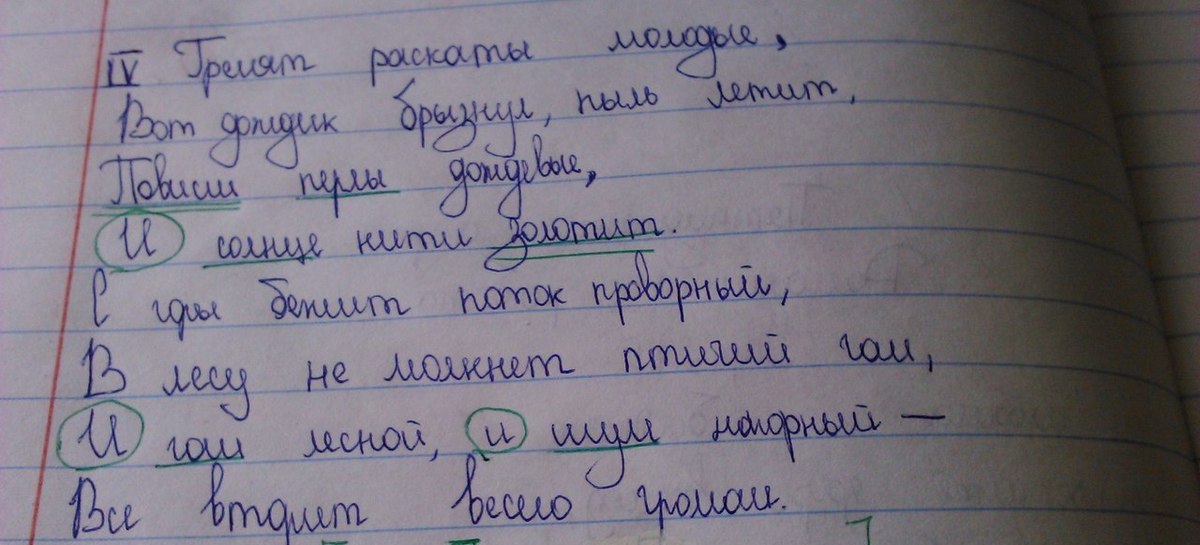 IV Гремят раскаты молодые,
Вот дождик брызнул, пыль летит,
Повисли перлы дождевые,
И солнце нити золотит.
С горы бежит поток проворный,
В лесу не молкнет птичий гам,
И гам лесной, и шум нагорный —
Все вторит весело громам.